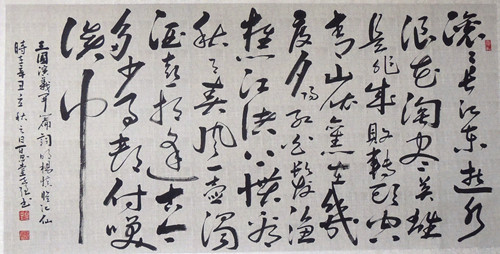 滚滚长江东逝水
浪花淘尽英雄
是非成败转头空
青山依旧在几
度夕阳红白发渔
樵江渚上惯看
秋月春风一壶浊
酒喜相逢古今
多少事都付笑
谈中
三国演义开篇词明杨慎临江仙
时在辛丑立秋之日